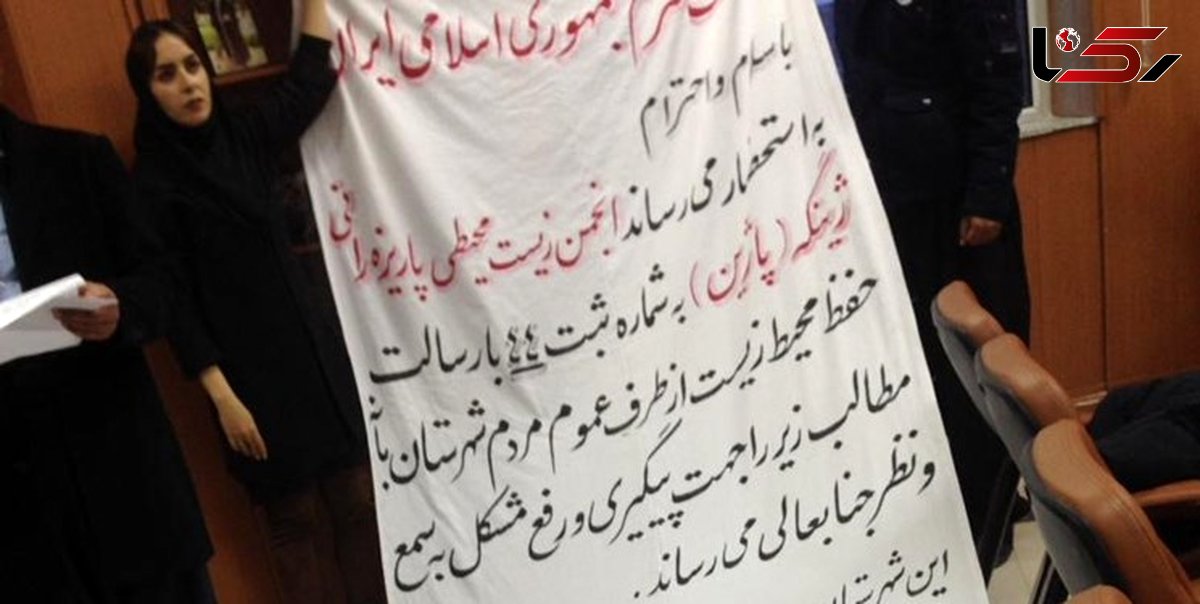 جمهوری اسلامی ایران
با سلام و احترام
به استحضار می رساند انجمن زیست محیطی پاریزه رانی
ژینگه (پاژین) به شماره ثبت ٤٤ با رسالت
حفظ محیط زیست از طرف عموم مردم شهرستان بانه
مطالب زیر را جهت پیگیری و رفع مشکل به سمع
و نظر جنابعالی می رساند.
این شهرستان
رکنا